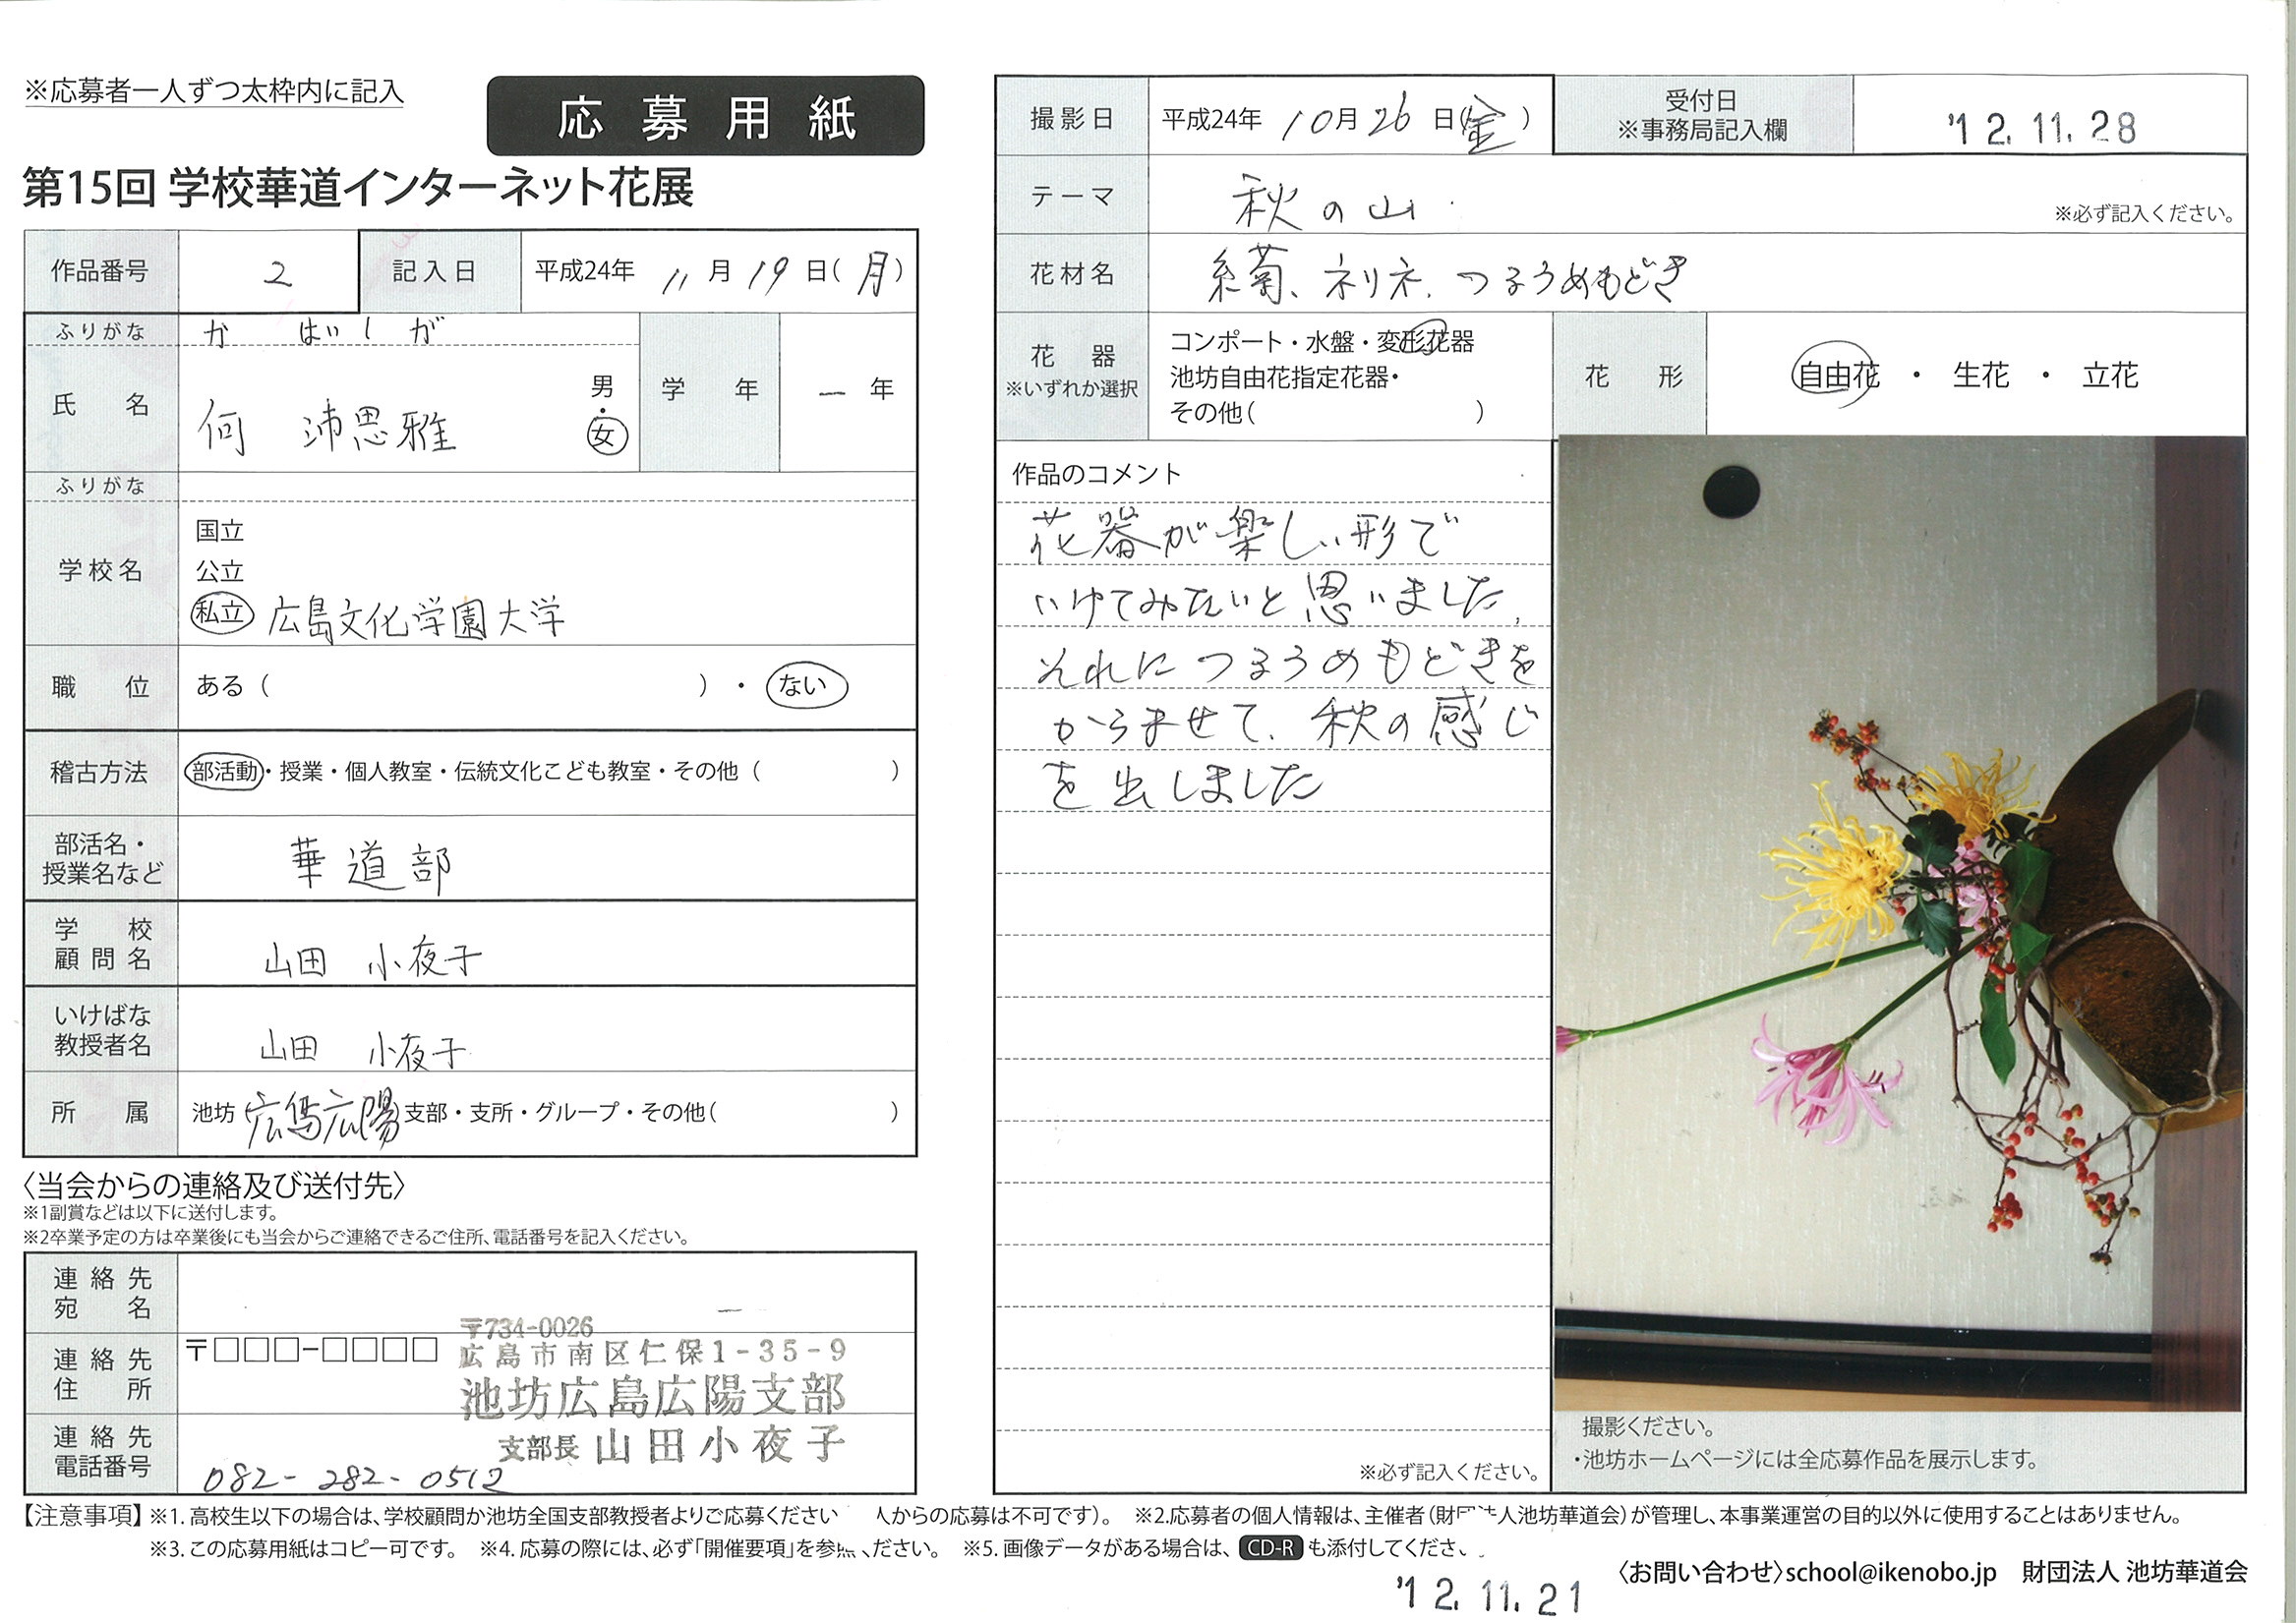 ※応募者一人ずつ太枠内に記入
応募用紙
第15回 学校華道インターネット花展
作品番号 2 記入日 平成24年 11月19日(月)
ふりがな か はい し が
氏名 何 沛思雅 男・女 学年 一年
ふりがな
学校名 国立
公立
私立 広島文化学園大学
職位 ある( )・ない
稽古方法 部活動・授業・個人教室・伝統文化こども教室・その他( )
部活名・
授業名など 華道部
学校
顧問名 山田 小夜子
いけばな
教授者名 山田 小夜子
所属 池坊 広島広陽 支部・支所・グループ・その他( )
〈当会からの連絡及び送付先〉
※1副賞などは以下に送付します。
※2卒業予定の方は卒業後にも当会からご連絡できるご住所、電話番号を記入ください。
連絡先
宛名
連絡先
住所
〒□□□-□□□□
〒734-0026
広島市南区仁保1-35-9
池坊広島広陽支部
支部長 山田小夜子
連絡先
電話番号 082-282-0512
撮影日 平成24年 10月26日(金)
受付日
※事務局記入欄
'12.11.28
テーマ 秋の山
※必ず記入ください。
花材名 糸菊、ネリネ、つるうめもどき
花器
※いずれか選択
コンポート・水盤・変形花器
池坊自由花指定花器・
その他( )
花形 自由花・生花・立花
作品のコメント
花器が楽しい形で
いけてみたいと思いました。
それにつるうめもどきを
からませて、秋の感じ
を出しました
※必ず記入ください。
撮影ください。
・池坊ホームページには全応募作品を展示します。
【注意事項】※1.高校生以下の場合は、学校顧問か池坊全国支部教授者よりご応募ください 人からの応募は不可です)。 ※2.応募者の個人情報は、主催者(財団法人池坊華道会)が管理し、本事業運営の目的以外に使用することはありません。
※3.この応募用紙はコピー可です。 ※4.応募の際には、必ず「開催要項」を参 ください。 ※5.画像データがある場合は、CD-Rも添付してくださ
〈お問い合わせ〉school@ikenobo.jp 財団法人 池坊華道会
'12.11.21